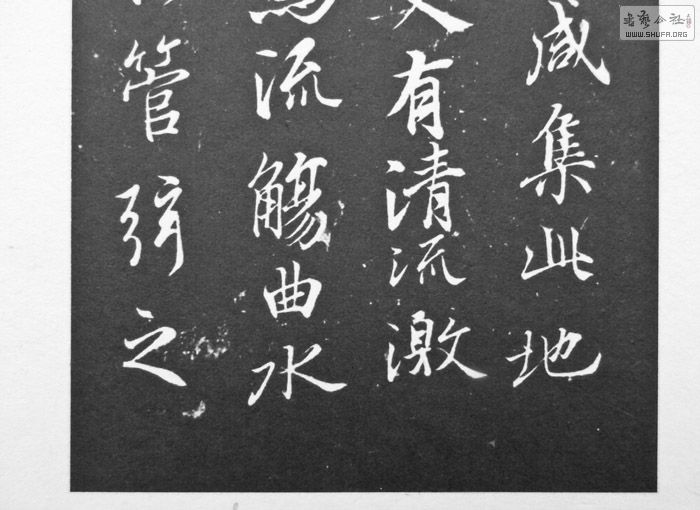 咸集此地
又有清流激
為流觴曲水
管弦之
書藝公社
WWW.SHUFA.ORG